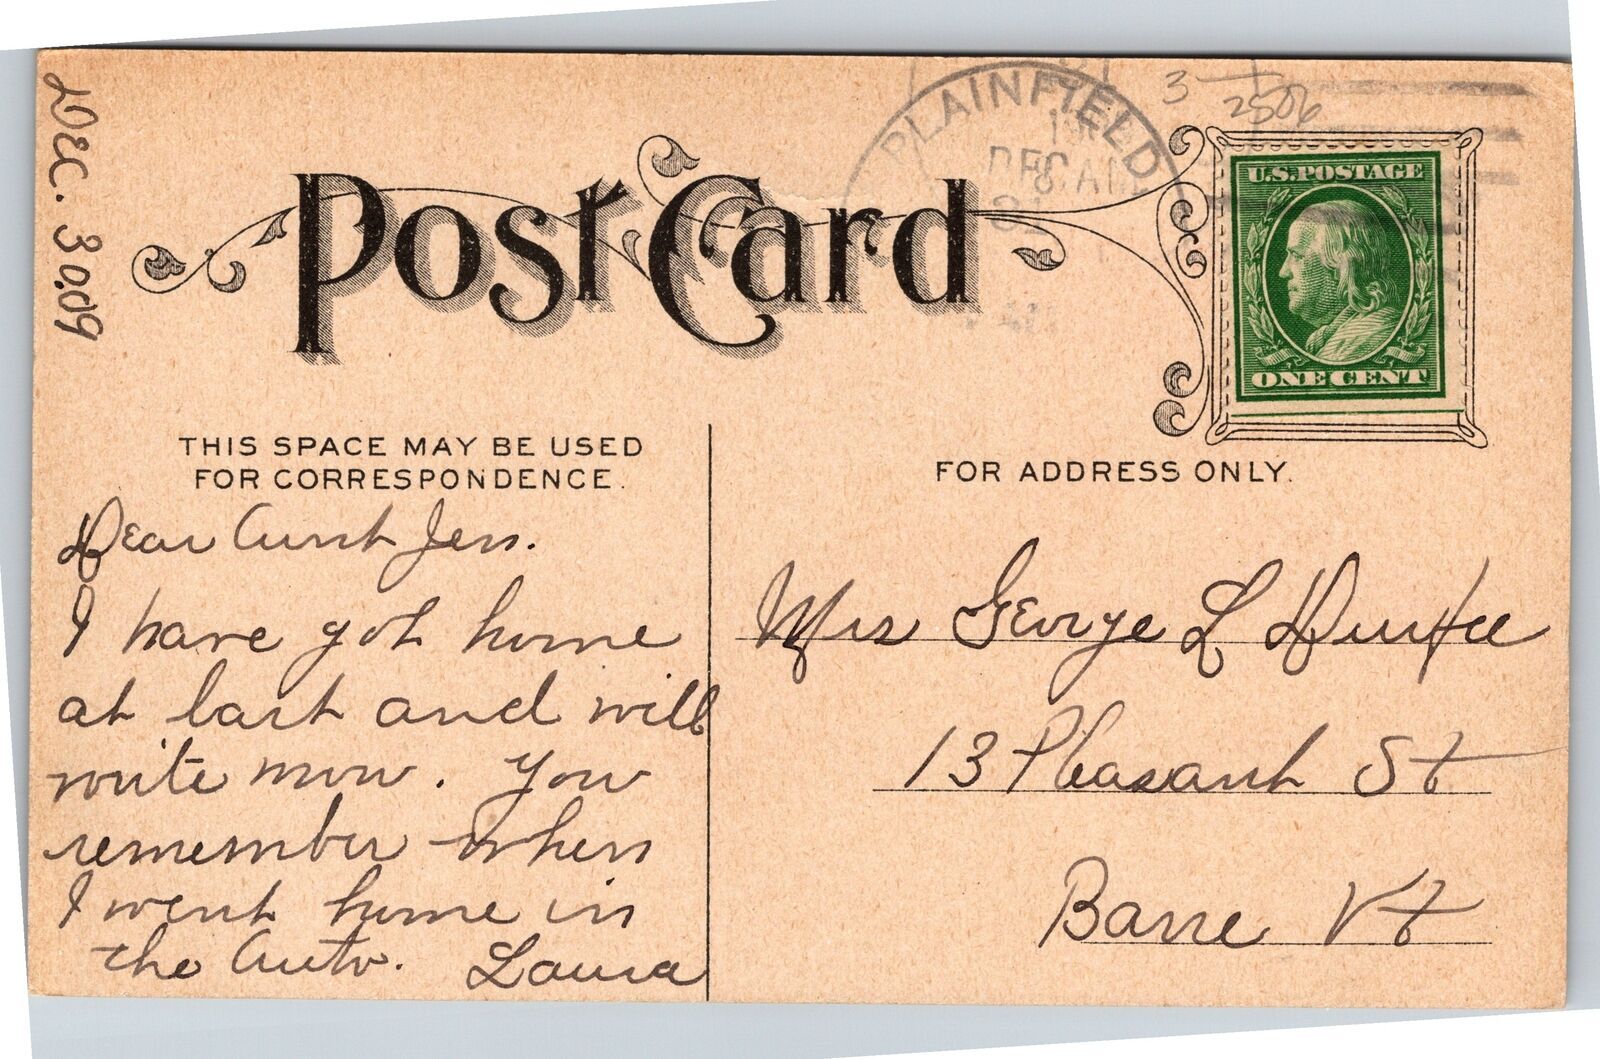 Dec. 30.09
PLAINFIELD
DEC
31
3
2506
U.S. POSTAGE
ONE CENT
Post Card
THIS SPACE MAY BE USED
FOR CORRESPONDENCE.
FOR ADDRESS ONLY.
Dear Aunt Jen.
I have got home
at last and will
write now. You
remember when
I went home in
the Auto. Laura
Mrs George L Durfee
13 Pleasant St
Barre Vt